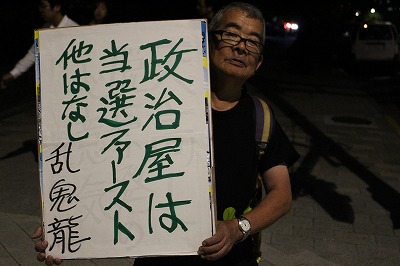 政治屋は
当選ファースト
他はなし
乱鬼龍